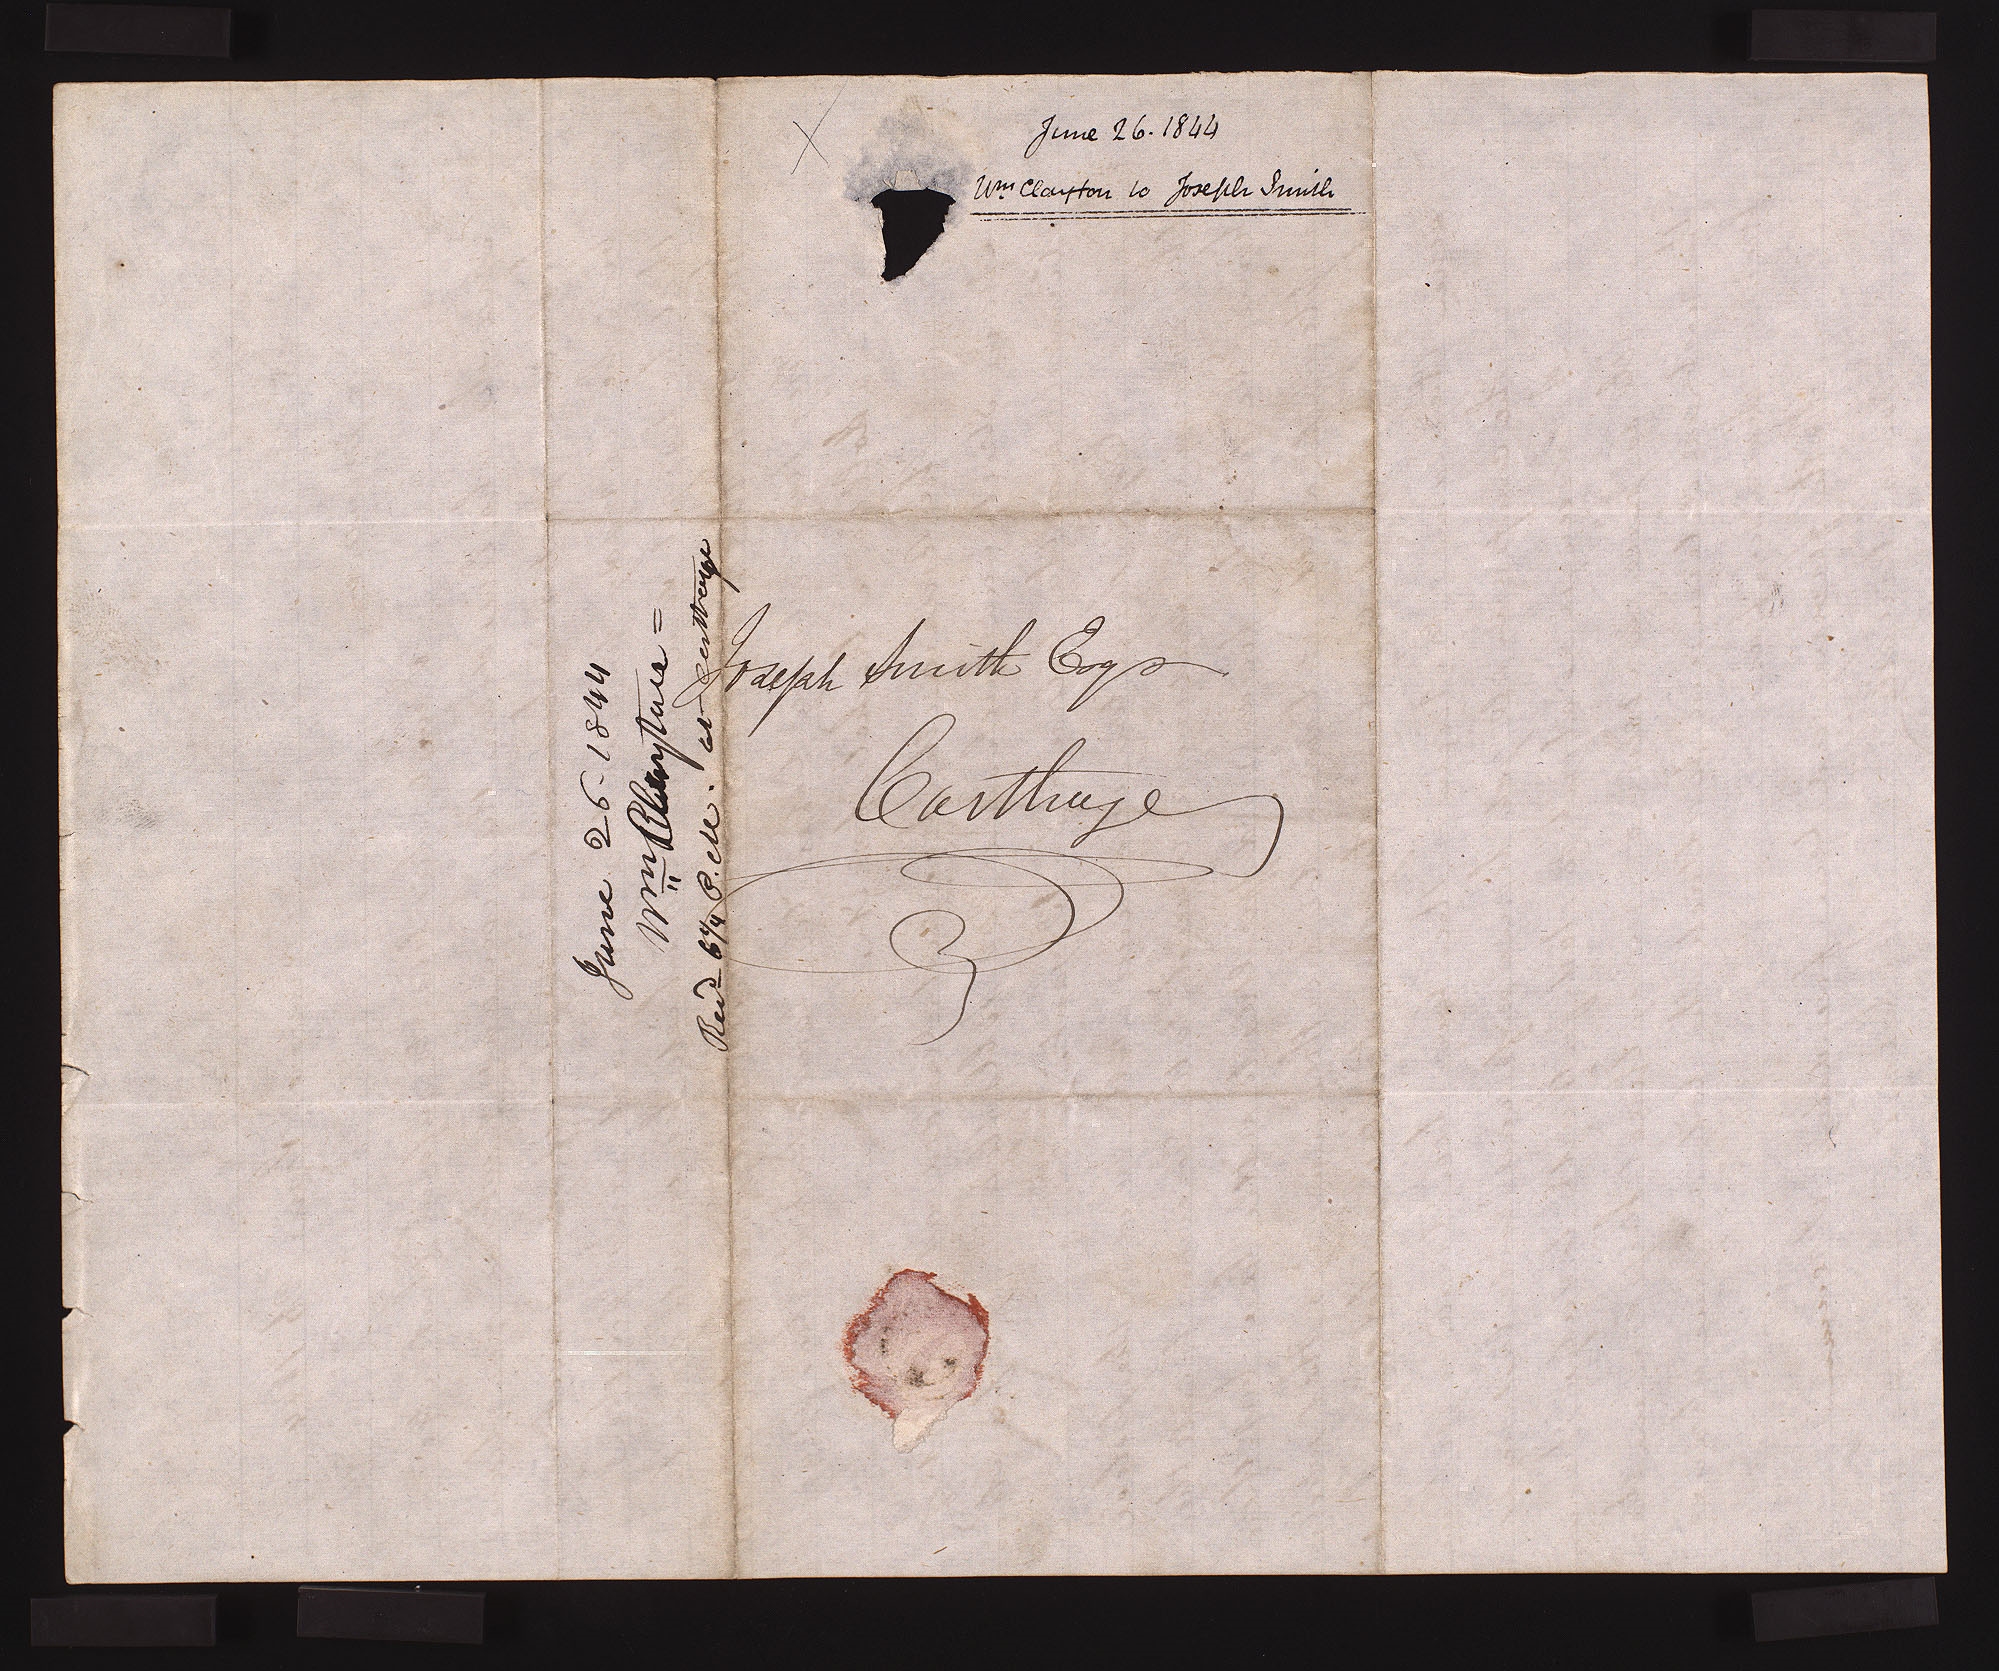 X
June 26. 1844
Wm. Clayton to Joseph Smith
June 26-1844
Wm Clayton =
Recd 6¼ P.M. at Carthage
Joseph Smith Esqr
Carthage